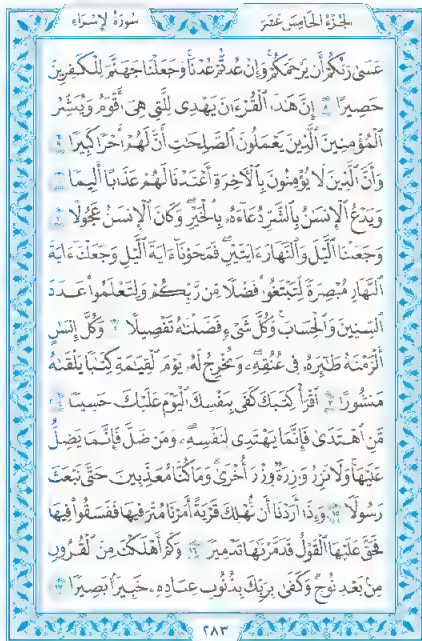 الجزء الخامس عشر سورة الإسراء
عَسَىٰ رَبُّكُمْ أَن يَرْحَمَكُمْ وَإِنْ عُدتُّمْ عُدْنَا وَجَعَلْنَا جَهَنَّمَ لِلْكَٰفِرِينَ
حَصِيرًا ٨ إِنَّ هَٰذَا الْقُرْءَانَ يَهْدِى لِلَّتِى هِىَ أَقْوَمُ وَيُبَشِّرُ
الْمُؤْمِنِينَ الَّذِينَ يَعْمَلُونَ الصَّٰلِحَٰتِ أَنَّ لَهُمْ أَجْرًا كَبِيرًا ٩
وَأَنَّ الَّذِينَ لَا يُؤْمِنُونَ بِالْأَخِرَةِ أَعْتَدْنَا لَهُمْ عَذَابًا أَلِيمًا ١٠
وَيَدْعُ الْإِنسَٰنُ بِالشَّرِّ دُعَآءَهُۥ بِالْخَيْرِ وَكَانَ الْإِنسَٰنُ عَجُولًا ١١
وَجَعَلْنَا الَّيْلَ وَالنَّهَارَ ءَايَتَيْنِ فَمَحَوْنَآ ءَايَةَ الَّيْلِ وَجَعَلْنَآ ءَايَةَ
النَّهَارِ مُبْصِرَةً لِّتَبْتَغُوا۟ فَضْلًا مِّن رَّبِّكُمْ وَلِتَعْلَمُوا۟ عَدَدَ
السِّنِينَ وَالْحِسَابَ وَكُلَّ شَىْءٍ فَصَّلْنَٰهُ تَفْصِيلًا ١٢ وَكُلَّ إِنسَٰنٍ
أَلْزَمْنَٰهُ طَٰٓئِرَهُۥ فِى عُنُقِهِۦ وَنُخْرِجُ لَهُۥ يَوْمَ الْقِيَٰمَةِ كِتَٰبًا يَلْقَىٰهُ
مَنشُورًا ١٣ اقْرَأْ كِتَٰبَكَ كَفَىٰ بِنَفْسِكَ الْيَوْمَ عَلَيْكَ حَسِيبًا ١٤
مَّنِ اهْتَدَىٰ فَإِنَّمَا يَهْتَدِى لِنَفْسِهِۦ وَمَن ضَلَّ فَإِنَّمَا يَضِلُّ
عَلَيْهَا وَلَا تَزِرُ وَازِرَةٌ وِزْرَ أُخْرَىٰ وَمَا كُنَّا مُعَذِّبِينَ حَتَّىٰ نَبْعَثَ
رَسُولًا ١٥ وَإِذَآ أَرَدْنَآ أَن نُّهْلِكَ قَرْيَةً أَمَرْنَا مُتْرَفِيهَا فَفَسَقُوا۟ فِيهَا
فَحَقَّ عَلَيْهَا الْقَوْلُ فَدَمَّرْنَٰهَا تَدْمِيرًا ١٦ وَكَمْ أَهْلَكْنَا مِنَ الْقُرُونِ
مِنۢ بَعْدِ نُوحٍ وَكَفَىٰ بِرَبِّكَ بِذُنُوبِ عِبَادِهِۦ خَبِيرًۢا بَصِيرًا ١٧
٢٨٣